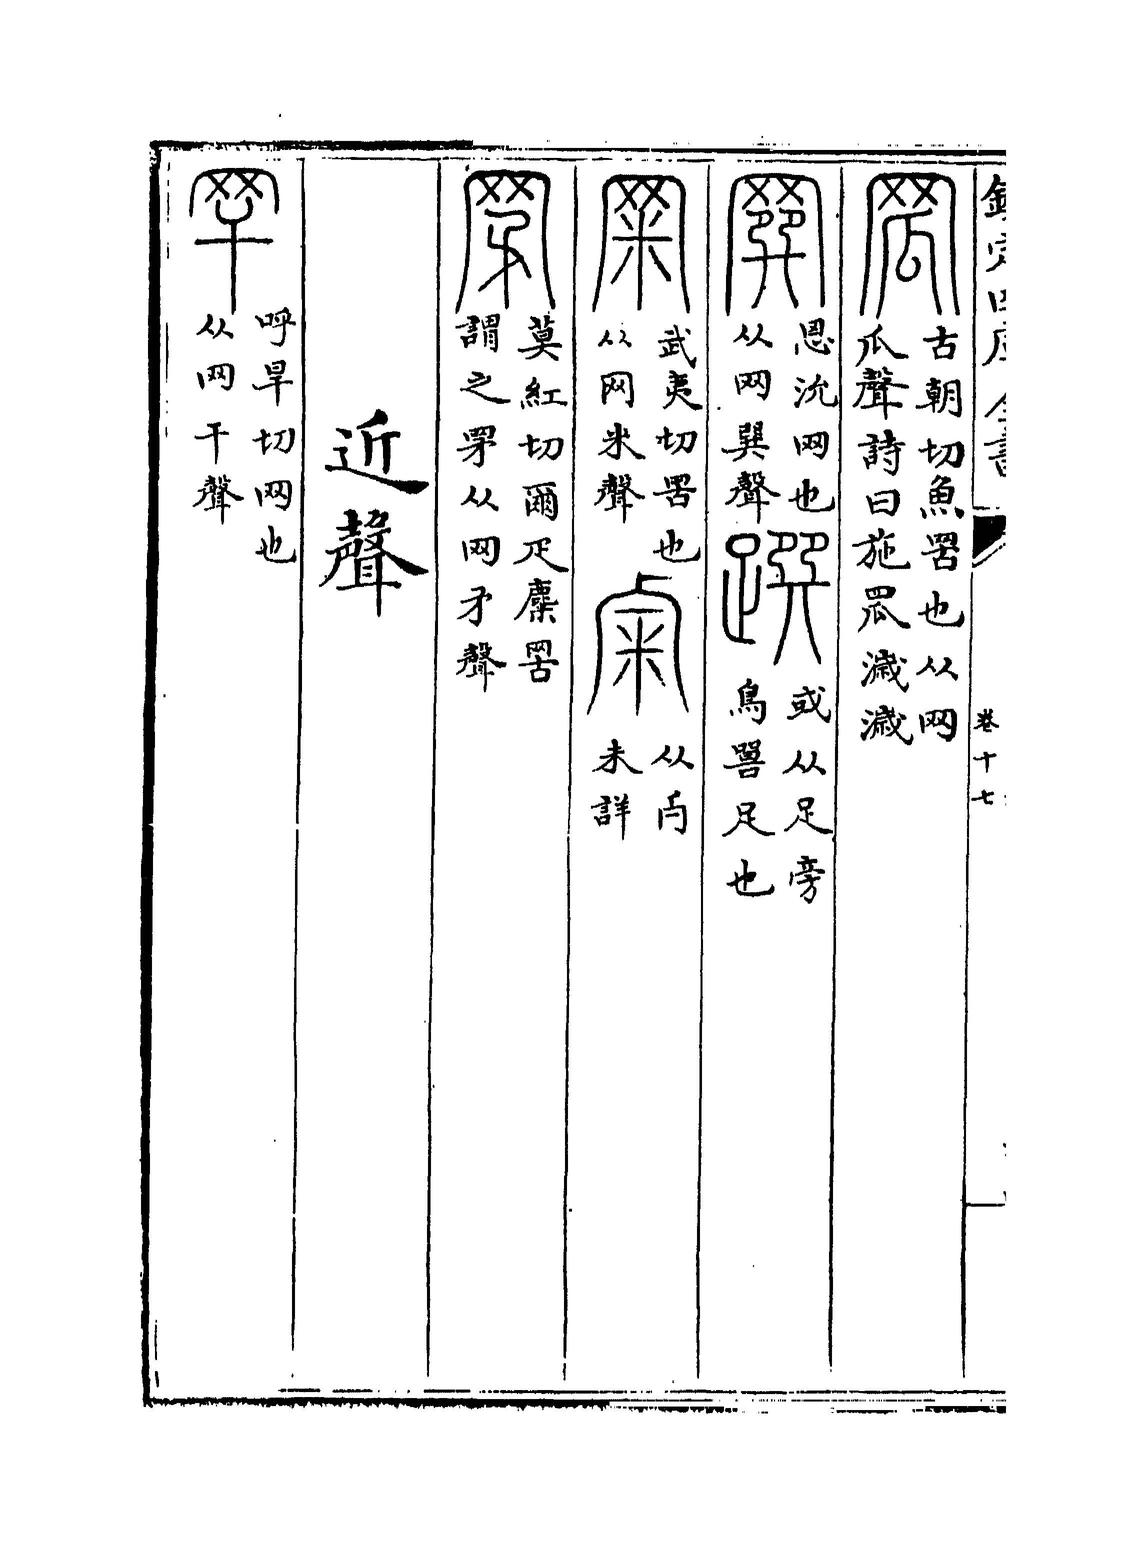 欽定四庫全書
卷十七
罛
古朝切魚罟也从网
瓜聲詩曰施罛濊濊
䍻
恩沇网也
从网巽聲
或从足旁
鳥罟足也
武夷切罟也
从网米聲
从
未詳
罞
莫紅切爾疋麋罟
謂之罞从网矛聲
近聲
罕
呼旱切网也
从网干聲